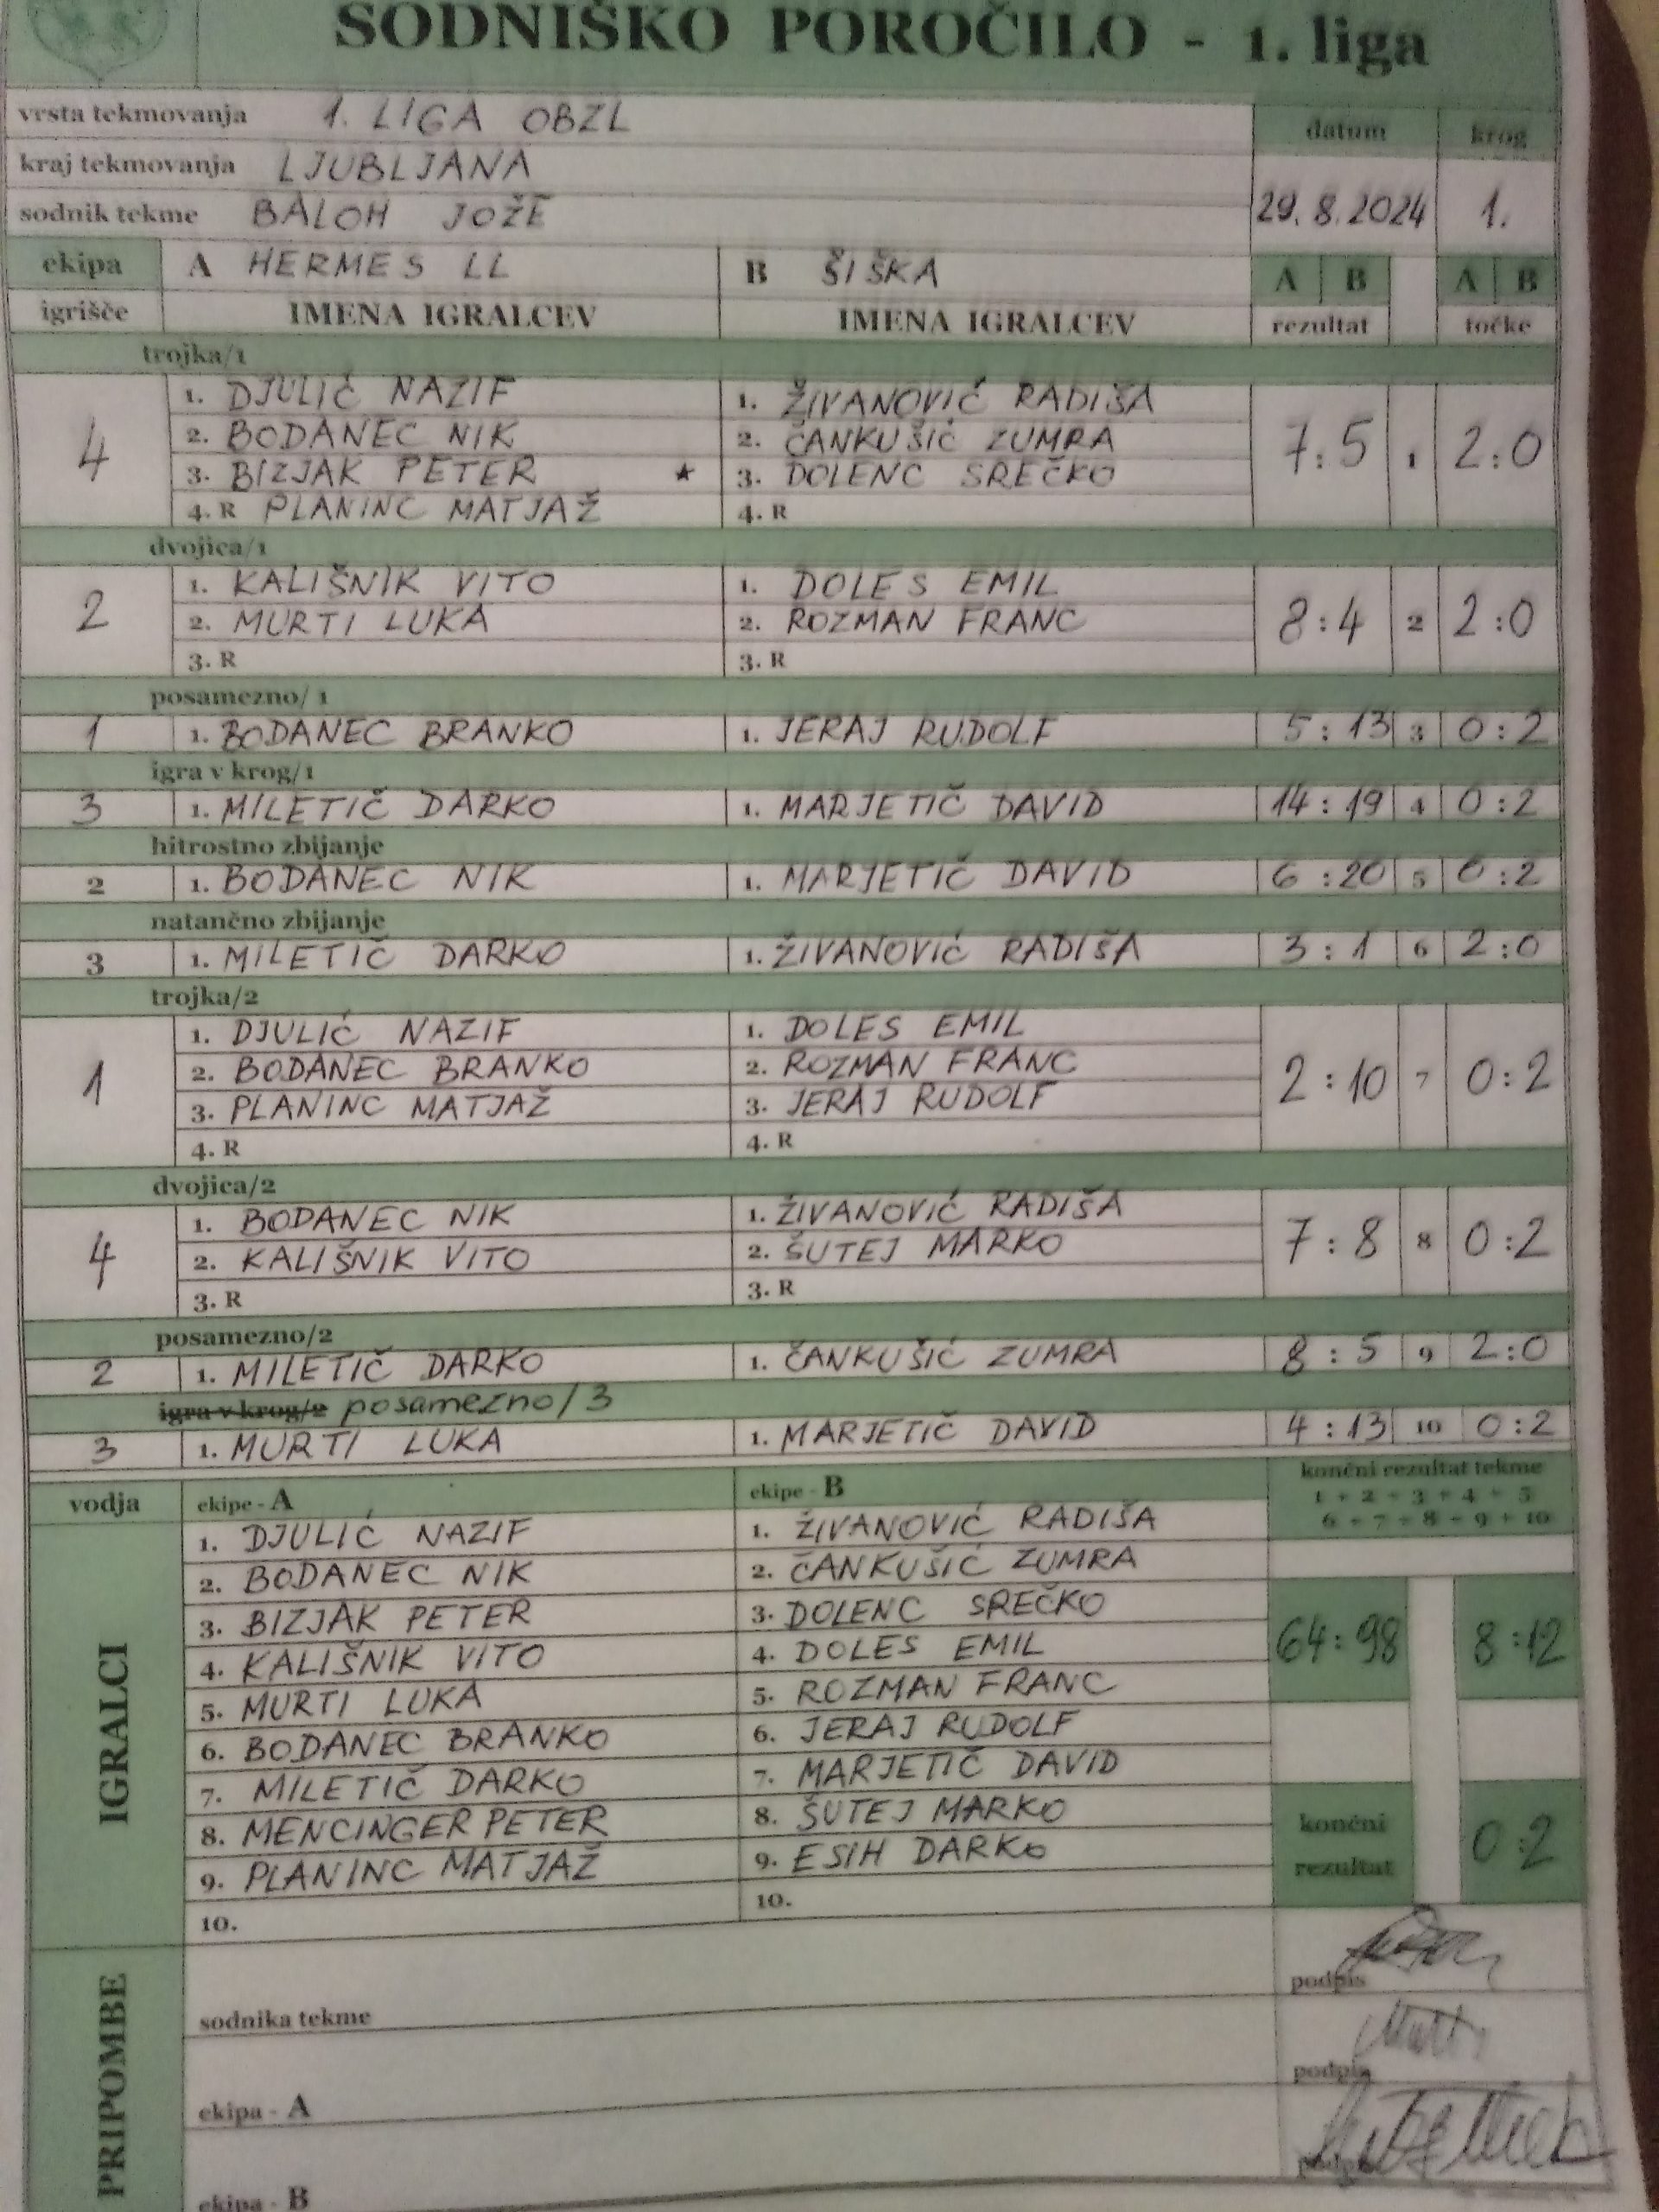 SODNIŠKO POROČILO - 1. liga
vrsta tekmovanja 1. LIGA OBZL datum krog
kraj tekmovanja LJUBLJANA
sodnik tekme BALOH JOŽE 29.8.2024 1.
ekipa A HERMES LL B ŠIŠKA A B A B
igrišče IMENA IGRALCEV IMENA IGRALCEV rezultat točke
trojka/1
4 7:5 1 2:0
1. DJULIĆ NAZIF 1. ŽIVANOVIĆ RADIŠA
2. BODANEC NIK 2. ČANKUŠIĆ ZUMRA
3. BIZJAK PETER ★ 3. DOLENC SREČKO
4. R PLANINC MATJAŽ 4. R
dvojica/1
2 8:4 2 2:0
1. KALIŠNIK VITO 1. DOLES EMIL
2. MURTI LUKA 2. ROZMAN FRANC
3. R 3. R
posamezno/ 1
1 1. BODANEC BRANKO 1. JERAJ RUDOLF 5:13 3 0:2
igra v krog/1
3 1. MILETIČ DARKO 1. MARJETIČ DAVID 14:19 4 0:2
hitrostno zbijanje
2 1. BODANEC NIK 1. MARJETIČ DAVID 6:20 5 0:2
natančno zbijanje
3 1. MILETIČ DARKO 1. ŽIVANOVIĆ RADIŠA 3:1 6 2:0
trojka/2
1 2:10 7 0:2
1. DJULIĆ NAZIF 1. DOLES EMIL
2. BODANEC BRANKO 2. ROZMAN FRANC
3. PLANINC MATJAŽ 3. JERAJ RUDOLF
4. R 4. R
dvojica/2
4 7:8 8 0:2
1. BODANEC NIK 1. ŽIVANOVIĆ RADIŠA
2. KALIŠNIK VITO 2. ŠUTEJ MARKO
3. R 3. R
posamezno/2
2 1. MILETIČ DARKO 1. ČANKUŠIĆ ZUMRA 8:5 9 2:0
igra v krog/2 posamezno/3
3 1. MURTI LUKA 1. MARJETIČ DAVID 4:13 10 0:2
vodja ekipe - A ekipe - B končni rezultat tekme
1 + 2 + 3 + 4 + 5
6 + 7 + 8 + 9 + 10
IGRALCI
1. DJULIĆ NAZIF 1. ŽIVANOVIĆ RADIŠA
2. BODANEC NIK 2. ČANKUŠIĆ ZUMRA
3. BIZJAK PETER 3. DOLENC SREČKO
4. KALIŠNIK VITO 4. DOLES EMIL 64:98 8:12
5. MURTI LUKA 5. ROZMAN FRANC
6. BODANEC BRANKO 6. JERAJ RUDOLF
7. MILETIČ DARKO 7. MARJETIČ DAVID
8. MENCINGER PETER 8. ŠUTEJ MARKO
9. PLANINC MATJAŽ 9. ESIH DARKO
10. 10.
končni rezultat 0:2
PRIPOMBE
sodnika tekme podpis
ekipa - A podpis
ekipa - B